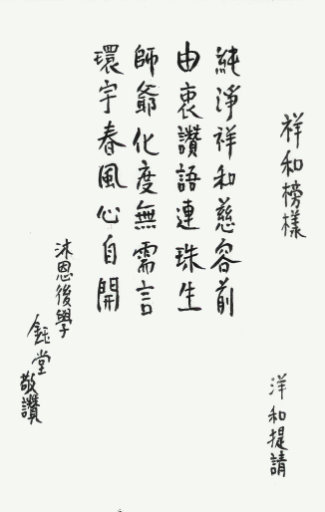 祥和榜樣
洋和提請
純淨祥和慈容前
由衷讚語連珠生
師爺化度無需言
環宇春風心自開
沐恩後學
鈺堂
敬讚